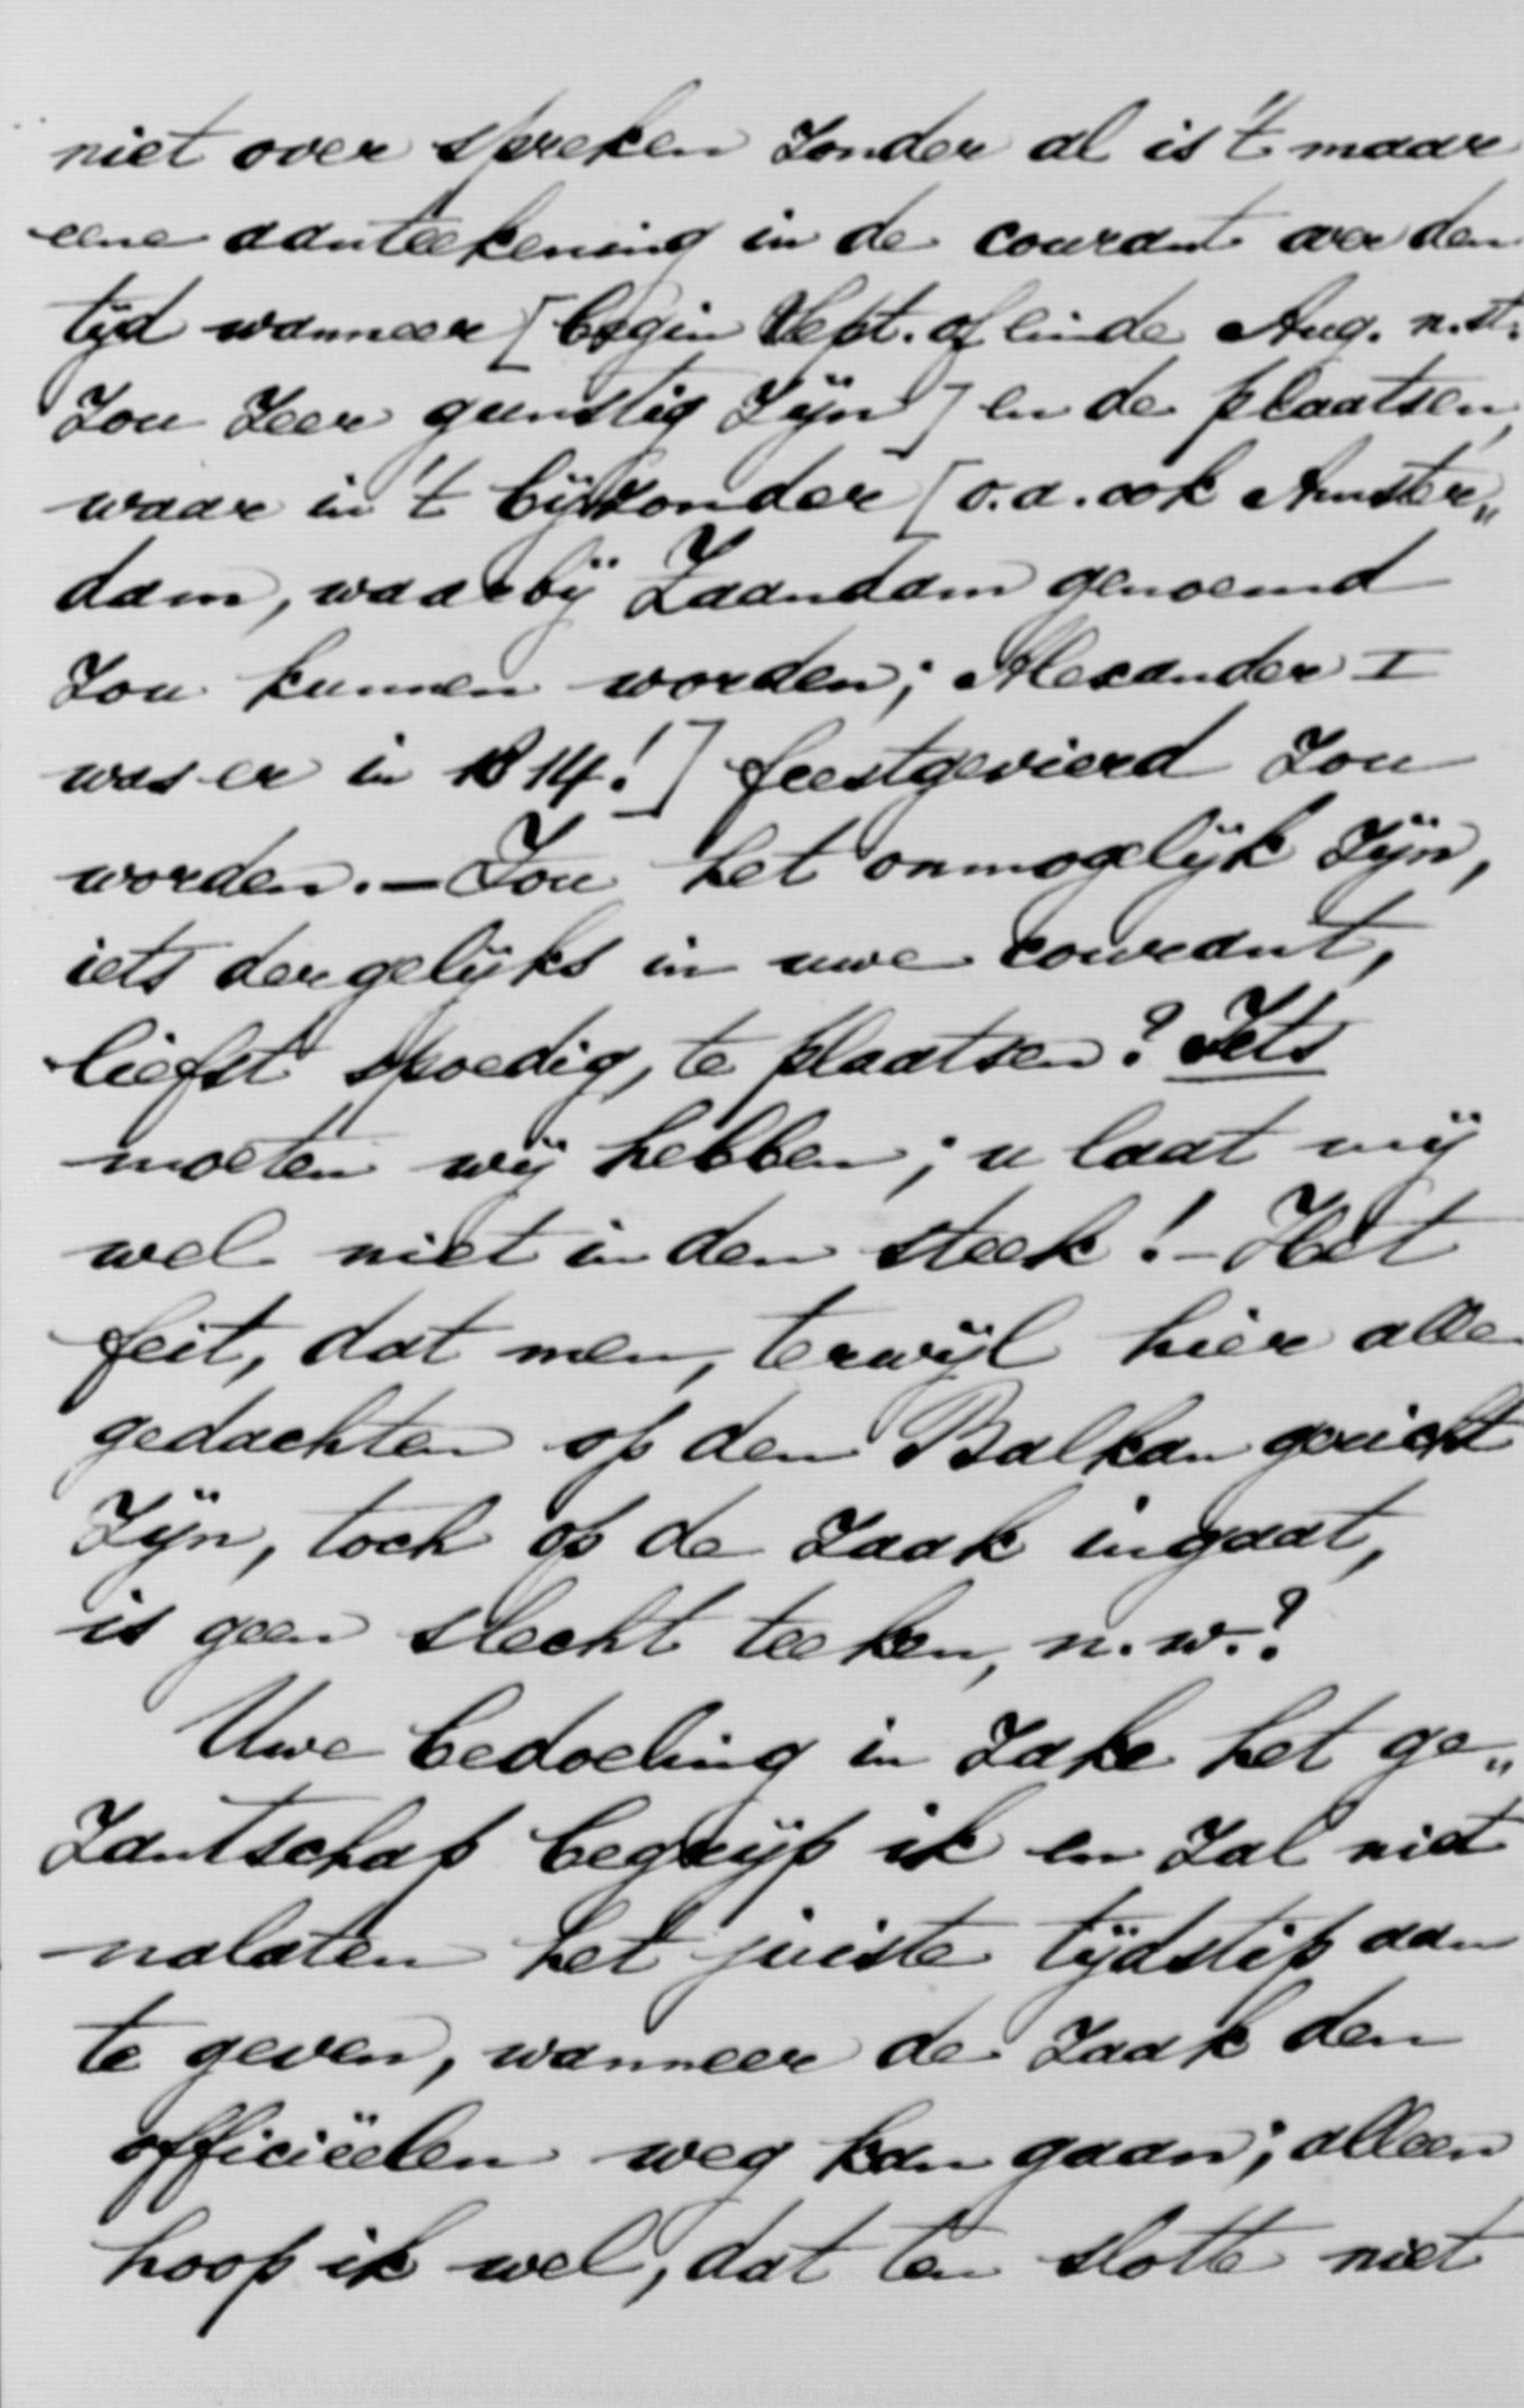 niet over spreken zonder al is 't maar
eene aanteekening in de courant over den
tijd wanneer [begin Sept. of einde Aug. n.st.
zou zeer gunstig zijn] en de plaatsen,
waar in 't bijzonder [o.a. ook Amster„
dam, waarbij Zaandam genoemd
zou kunnen worden; Alexander I
was er in 1814!] feestgevierd zou
worden. – Zou het onmogelijk zijn,
iets dergelijks in uwe courant,
liefst spoedig, te plaatsen? Iets
moeten wij hebben; u laat mij
wel niet in den steek! – Het
feit, dat men, terwijl hier alle
gedachten op den Balkan gericht
zijn, toch op de zaak ingaat,
is geen slecht teeken, n.w.?
Uwe bedoeling in zake het ge„
zantschap begrijp ik en zal niet
nalaten het juiste tijdstip aan
te geven, wanneer de zaak den
officiëelen weg kan gaan; alleen
hoop ik wel, dat ten slotte niet